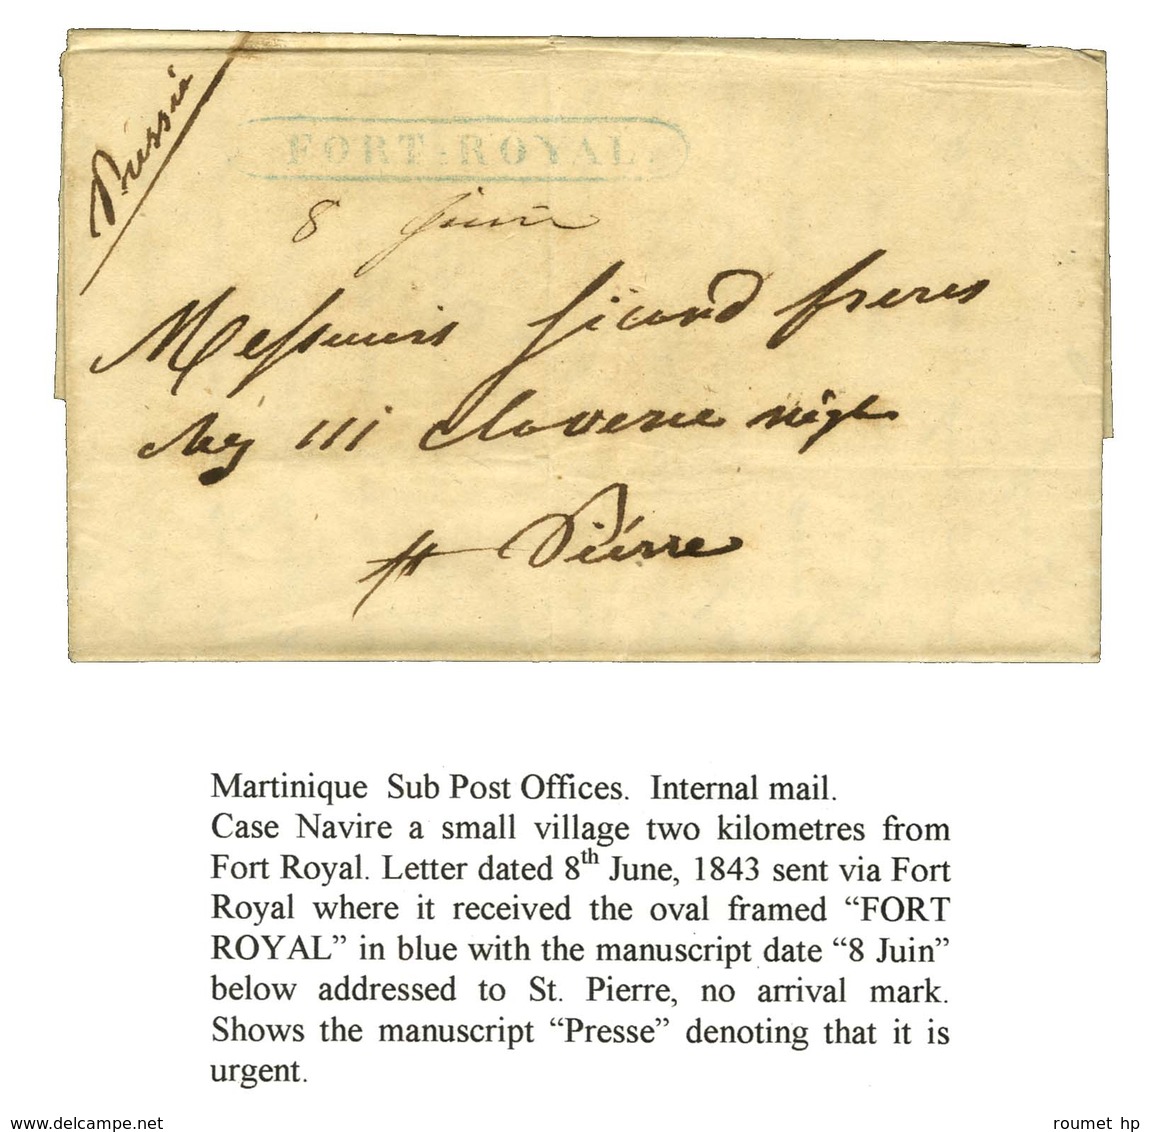 Pressée
FORT-ROYAL.
8 Juin
Messieurs Sicard frères
chez Claverie négt
St Pierre
Martinique Sub Post Offices. Internal mail.
Case Navire a small village two kilometres from
Fort Royal. Letter dated 8th June, 1843 sent via Fort
Royal where it received the oval framed “FORT
ROYAL” in blue with the manuscript date “8 Juin”
below addressed to St. Pierre, no arrival mark.
Shows the manuscript “Presse” denoting that it is
urgent.
www.delcampe.net
roumet_hp